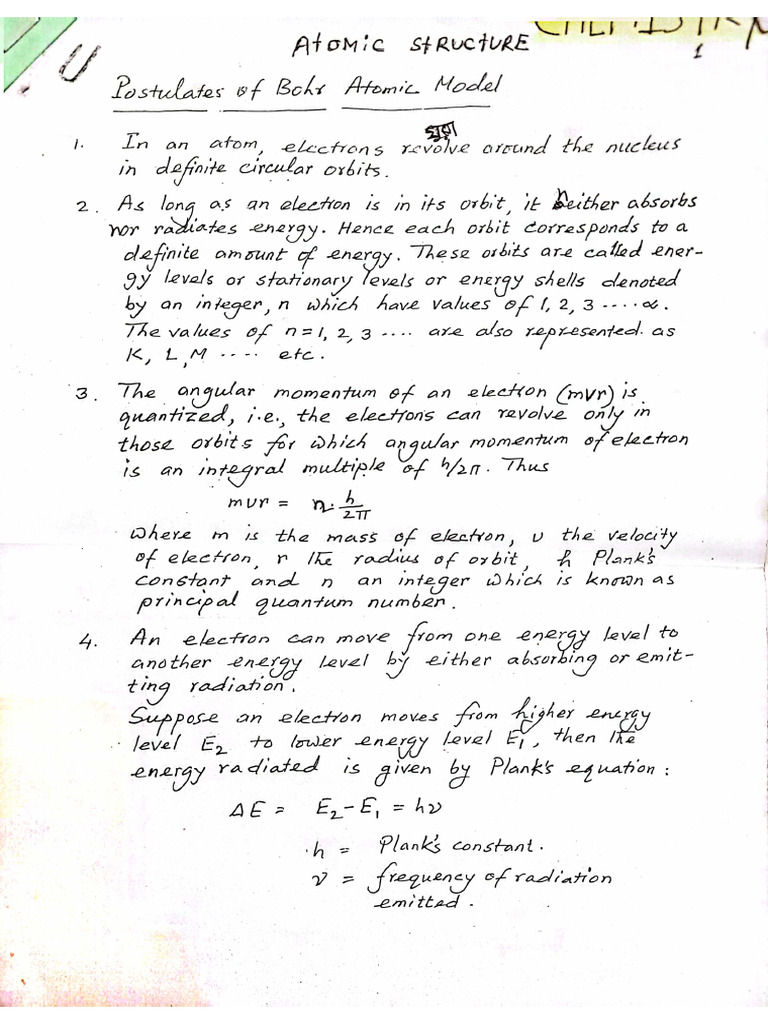 CHEMISTRY
ATOMIC STRUCTURE
1
U
Postulates of Bohr Atomic Model
ঘুরা
1. In an atom, electrons revolve around the nucleus
in definite circular orbits.
2. As long as an electron is in its orbit, it neither absorbs
nor radiates energy. Hence each orbit corresponds to a
definite amount of energy. These orbits are called ener-
gy levels or stationary levels or energy shells denoted
by an integer, n which have values of 1, 2, 3 ····· ∝.
The values of n = 1, 2, 3 ···· are also represented as
K, L, M ····· etc.
3. The angular momentum of an electron (mvr) is
quantized, i.e., the electrons can revolve only in
those orbits for which angular momentum of electron
is an integral multiple of h/2π. Thus
mvr = n·h/2π
where m is the mass of electron, v the velocity
of electron, r the radius of orbit, h Plank's
constant and n an integer which is known as
principal quantum number.
4. An electron can move from one energy level to
another energy level by either absorbing or emit-
ting radiation.
Suppose an electron moves from higher energy
level E₂ to lower energy level E₁, then the
energy radiated is given by Plank's equation:
ΔE = E₂-E₁ = hν
h = Plank's constant.
ν = frequency of radiation
emitted.